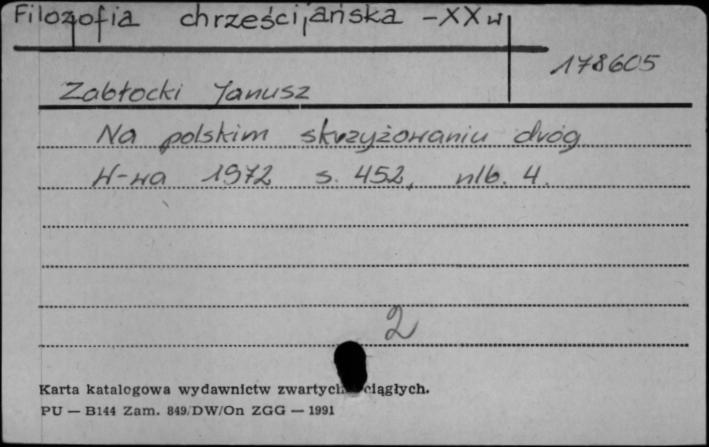 Filozofia chrześcijańska – XX w
178605
Zabłocki Janusz
Na polskim skrzyżowaniu dróg
W-wa 1972 s. 452, nlb. 4.
2
Karta katalogowa wydawnictw zwartych ciągłych.
PU — B144 Zam. 849/DW/On ZGG — 1991